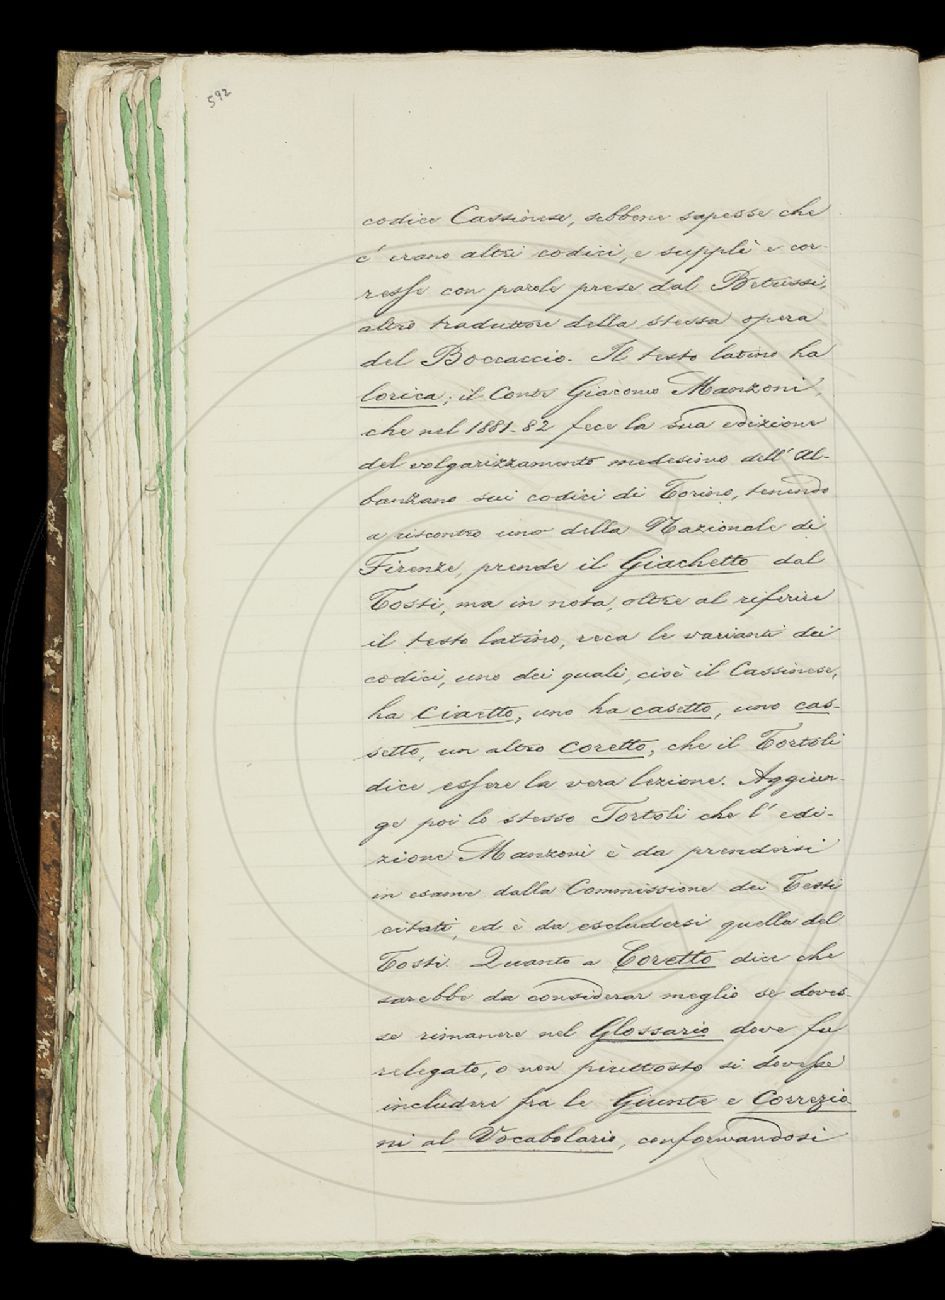 592
codice Cassinese, sebbene sapesse che
c'erano altri codici, e supplì e cor-
resse con parole prese dal Betussi,
altro traduttore della stessa opera
del Boccaccio. Il testo latino ha
lorica; il Conte Giacomo Manzoni,
che nel 1881-82 fece la sua edizione
del volgarizzamento medesimo dell'Al-
banzano sui codici di Torino, tenendo
a riscontro uno della Nazionale di
Firenze, prende il Giachetto dal
Tosti, ma in nota, oltre al riferire
il testo latino, reca le varianti dei
codici, uno dei quali, cioè il Cassinese,
ha Ciaetto, uno ha casetto, uno cas-
setto, un altro coretto, che il Tortoli
dice essere la vera lezione. Aggiun-
ge poi lo stesso Tortoli che l'edi-
zione Manzoni è da prendersi
in esame dalla Commissione dei Testi
citati, ed è da escludersi quella del
Tosti. Quanto a Coretto dice che
sarebbe da considerar meglio se doves-
se rimanere nel Glossario dove fu
relegato, o non piuttosto si dovesse
includere fra le Giunte e Correzio
ni al Vocabolario, conformandosi